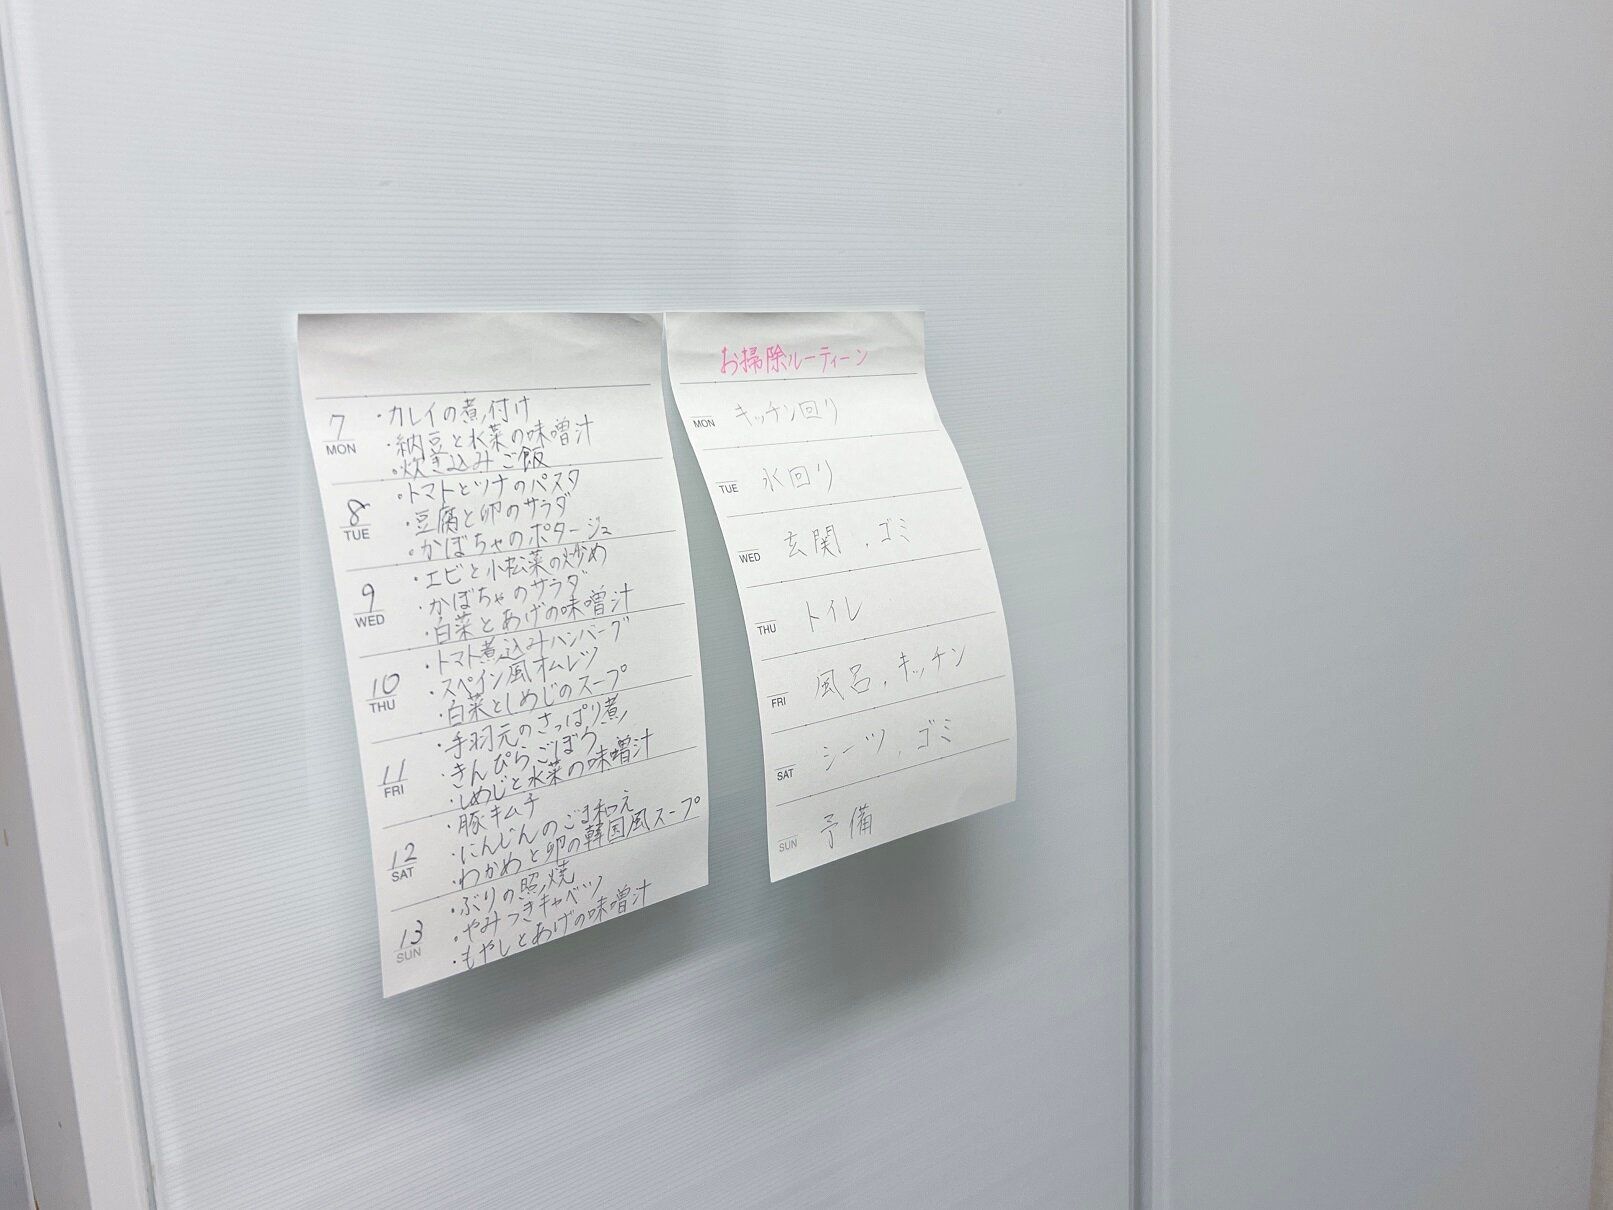 7
MON
・カレイの煮付け
・納豆と水菜の味噌汁
・炊き込みご飯
8
TUE
・トマトとツナのパスタ
・豆腐と卵のサラダ
・かぼちゃのポタージュ
9
WED
・エビと小松菜の炒め
・かぼちゃのサラダ
・白菜とあげの味噌汁
10
THU
・トマト煮込みハンバーグ
・スペイン風オムレツ
・白菜としめじのスープ
11
FRI
・手羽元のさっぱり煮
・きんぴらごぼう
・しめじと水菜の味噌汁
12
SAT
・豚キムチ
・にんじんのごま和え
・わかめと卵の韓国風スープ
13
SUN
・ぶりの照焼
・やみつきキャベツ
・もやしとあげの味噌汁
お掃除ルーティーン
MON キッチン回り
TUE 水回り
WED 玄関、ゴミ
THU トイレ
FRI 風呂、キッチン
SAT シーツ、ゴミ
SUN 予備